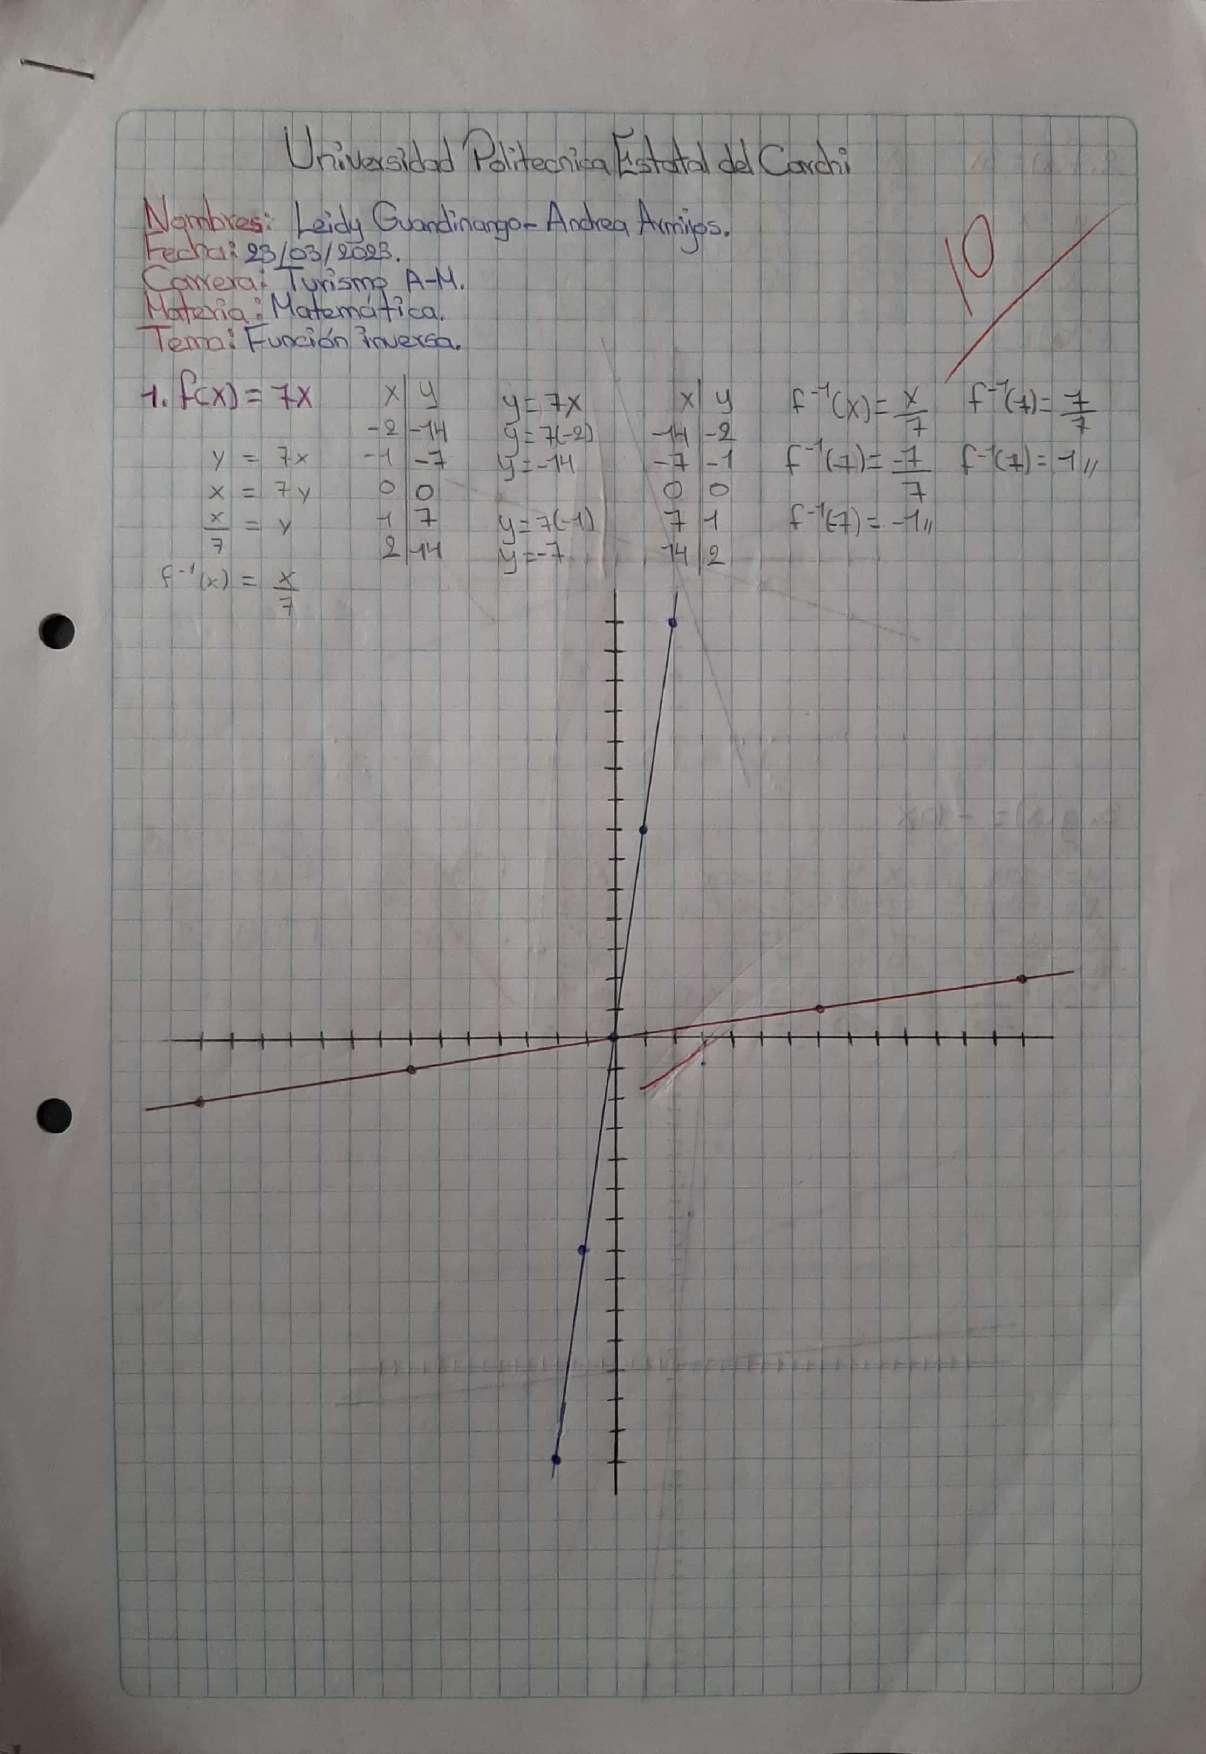 Universidad Politecnica Estatal del Carchi
Nombres: Leidy Guandinango - Andrea Armijos.
Fecha: 23/03/2023.
Carrera: Turismo A-M.
Materia: Matemática.
Tema: Función inversa.
10
1. f(x) = 7x
y = 7x
x = 7y
x/7 = y
f⁻¹(x) = x/7
x | y
-2 | -14
-1 | -7
0 | 0
1 | 7
2 | 14
y = 7x
y = 7(-2)
y = -14
y = 7(-1)
y = -7
x | y
-14 | -2
-7 | -1
0 | 0
7 | 1
14 | 2
f⁻¹(x) = x/7
f⁻¹(-7) = -7/7
f⁻¹(-7) = -1,,
f⁻¹(7) = 7/7
f⁻¹(7) = 1,,